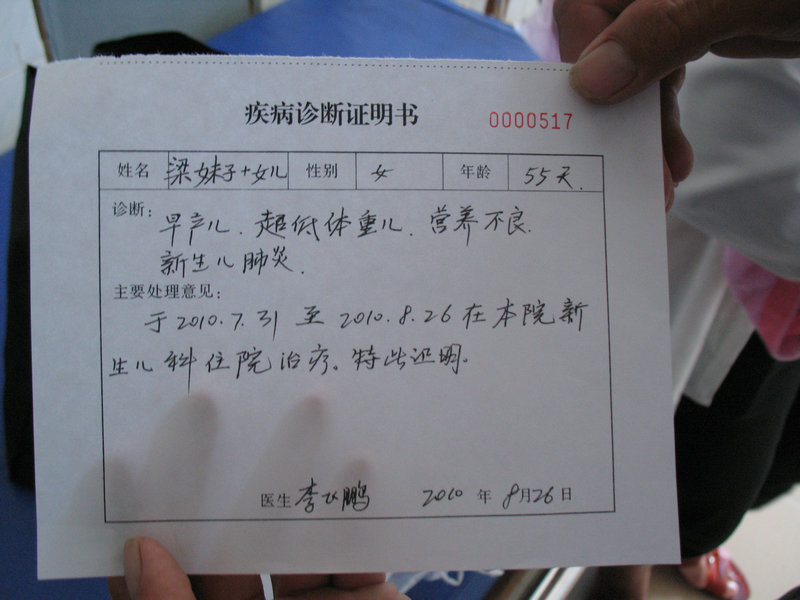 疾病诊断证明书 0000517
姓名 梁妹子+女儿 性别 女 年龄 55天.
诊断: 早产儿. 超低体重儿. 营养不良.
新生儿肺炎.
主要处理意见:
于2010.7.31 至 2010.8.26在本院新
生儿科住院治疗。特此证明。
医生 李飞鹏 2010 年 8月26日